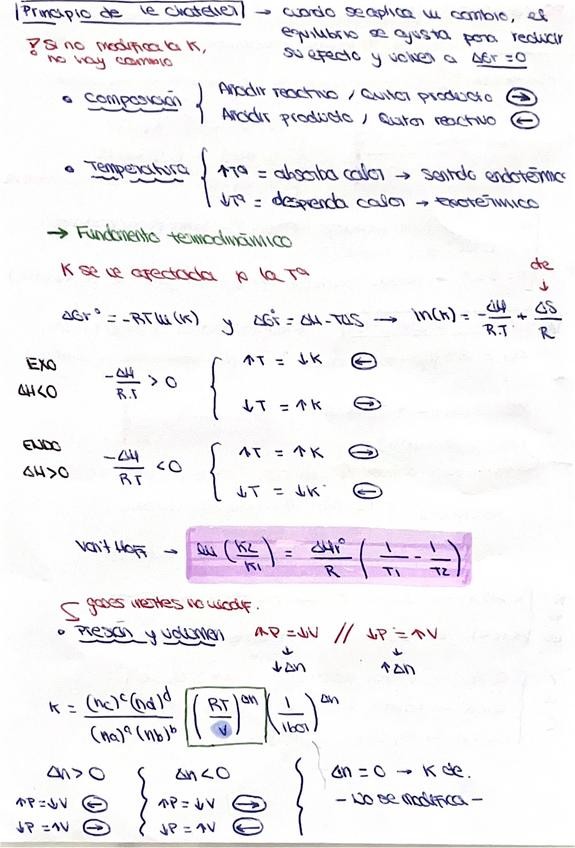 Principio de le chatelier → cuando se aplica un cambio, el
equilibrio se ajusta para reducir
su efecto y volver a ΔGr = 0
? Si no modifica la K,
no hay cambio
• Composición { Añadir reactivo / Quitar producto →
Añadir producto / Quitar reactivo ←
• Temperatura { ↑Tª = absorba calor → sentido endotérmico
↓Tª = desprenda calor → exotérmico
→ Fundamento termodinámico
K se ve afectada p la Tª
ΔGr° = -RT ln(K) y ΔGr° = ΔH - TΔS → ln(K) = -ΔH/R.T + ΔS/R
de ↓
EXO ΔH<0 -ΔH/R.T > 0 { ↑T = ↓K ←
↓T = ↑K →
ENDO ΔH>0 -ΔH/RT < 0 { ↑T = ↑K →
↓T = ↓K ←
Van't Hoff → ln (K2/K1) = ΔHr°/R (1/T1 - 1/T2)
gases inertes no modif.
• Presión y volumen ↑P = ↓V // ↓P = ↑V
↓ ↓
↓Δn ↑Δn
K = (nc)^c (nd)^d / (na)^a (nb)^b (RT/V)^Δn (1/1bar)^Δn
Δn > 0 { Δn < 0 { Δn = 0 → K de.
↑P = ↓V ← ↑P = ↓V → - No se modifica -
↓P = ↑V → ↓P = ↑V ←